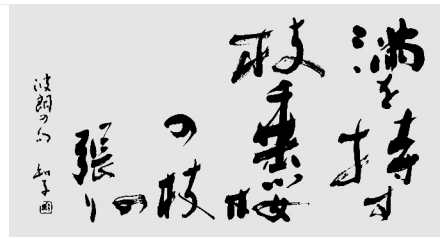 満を持す
枝垂桜
の枝
の
張り
波朗の句